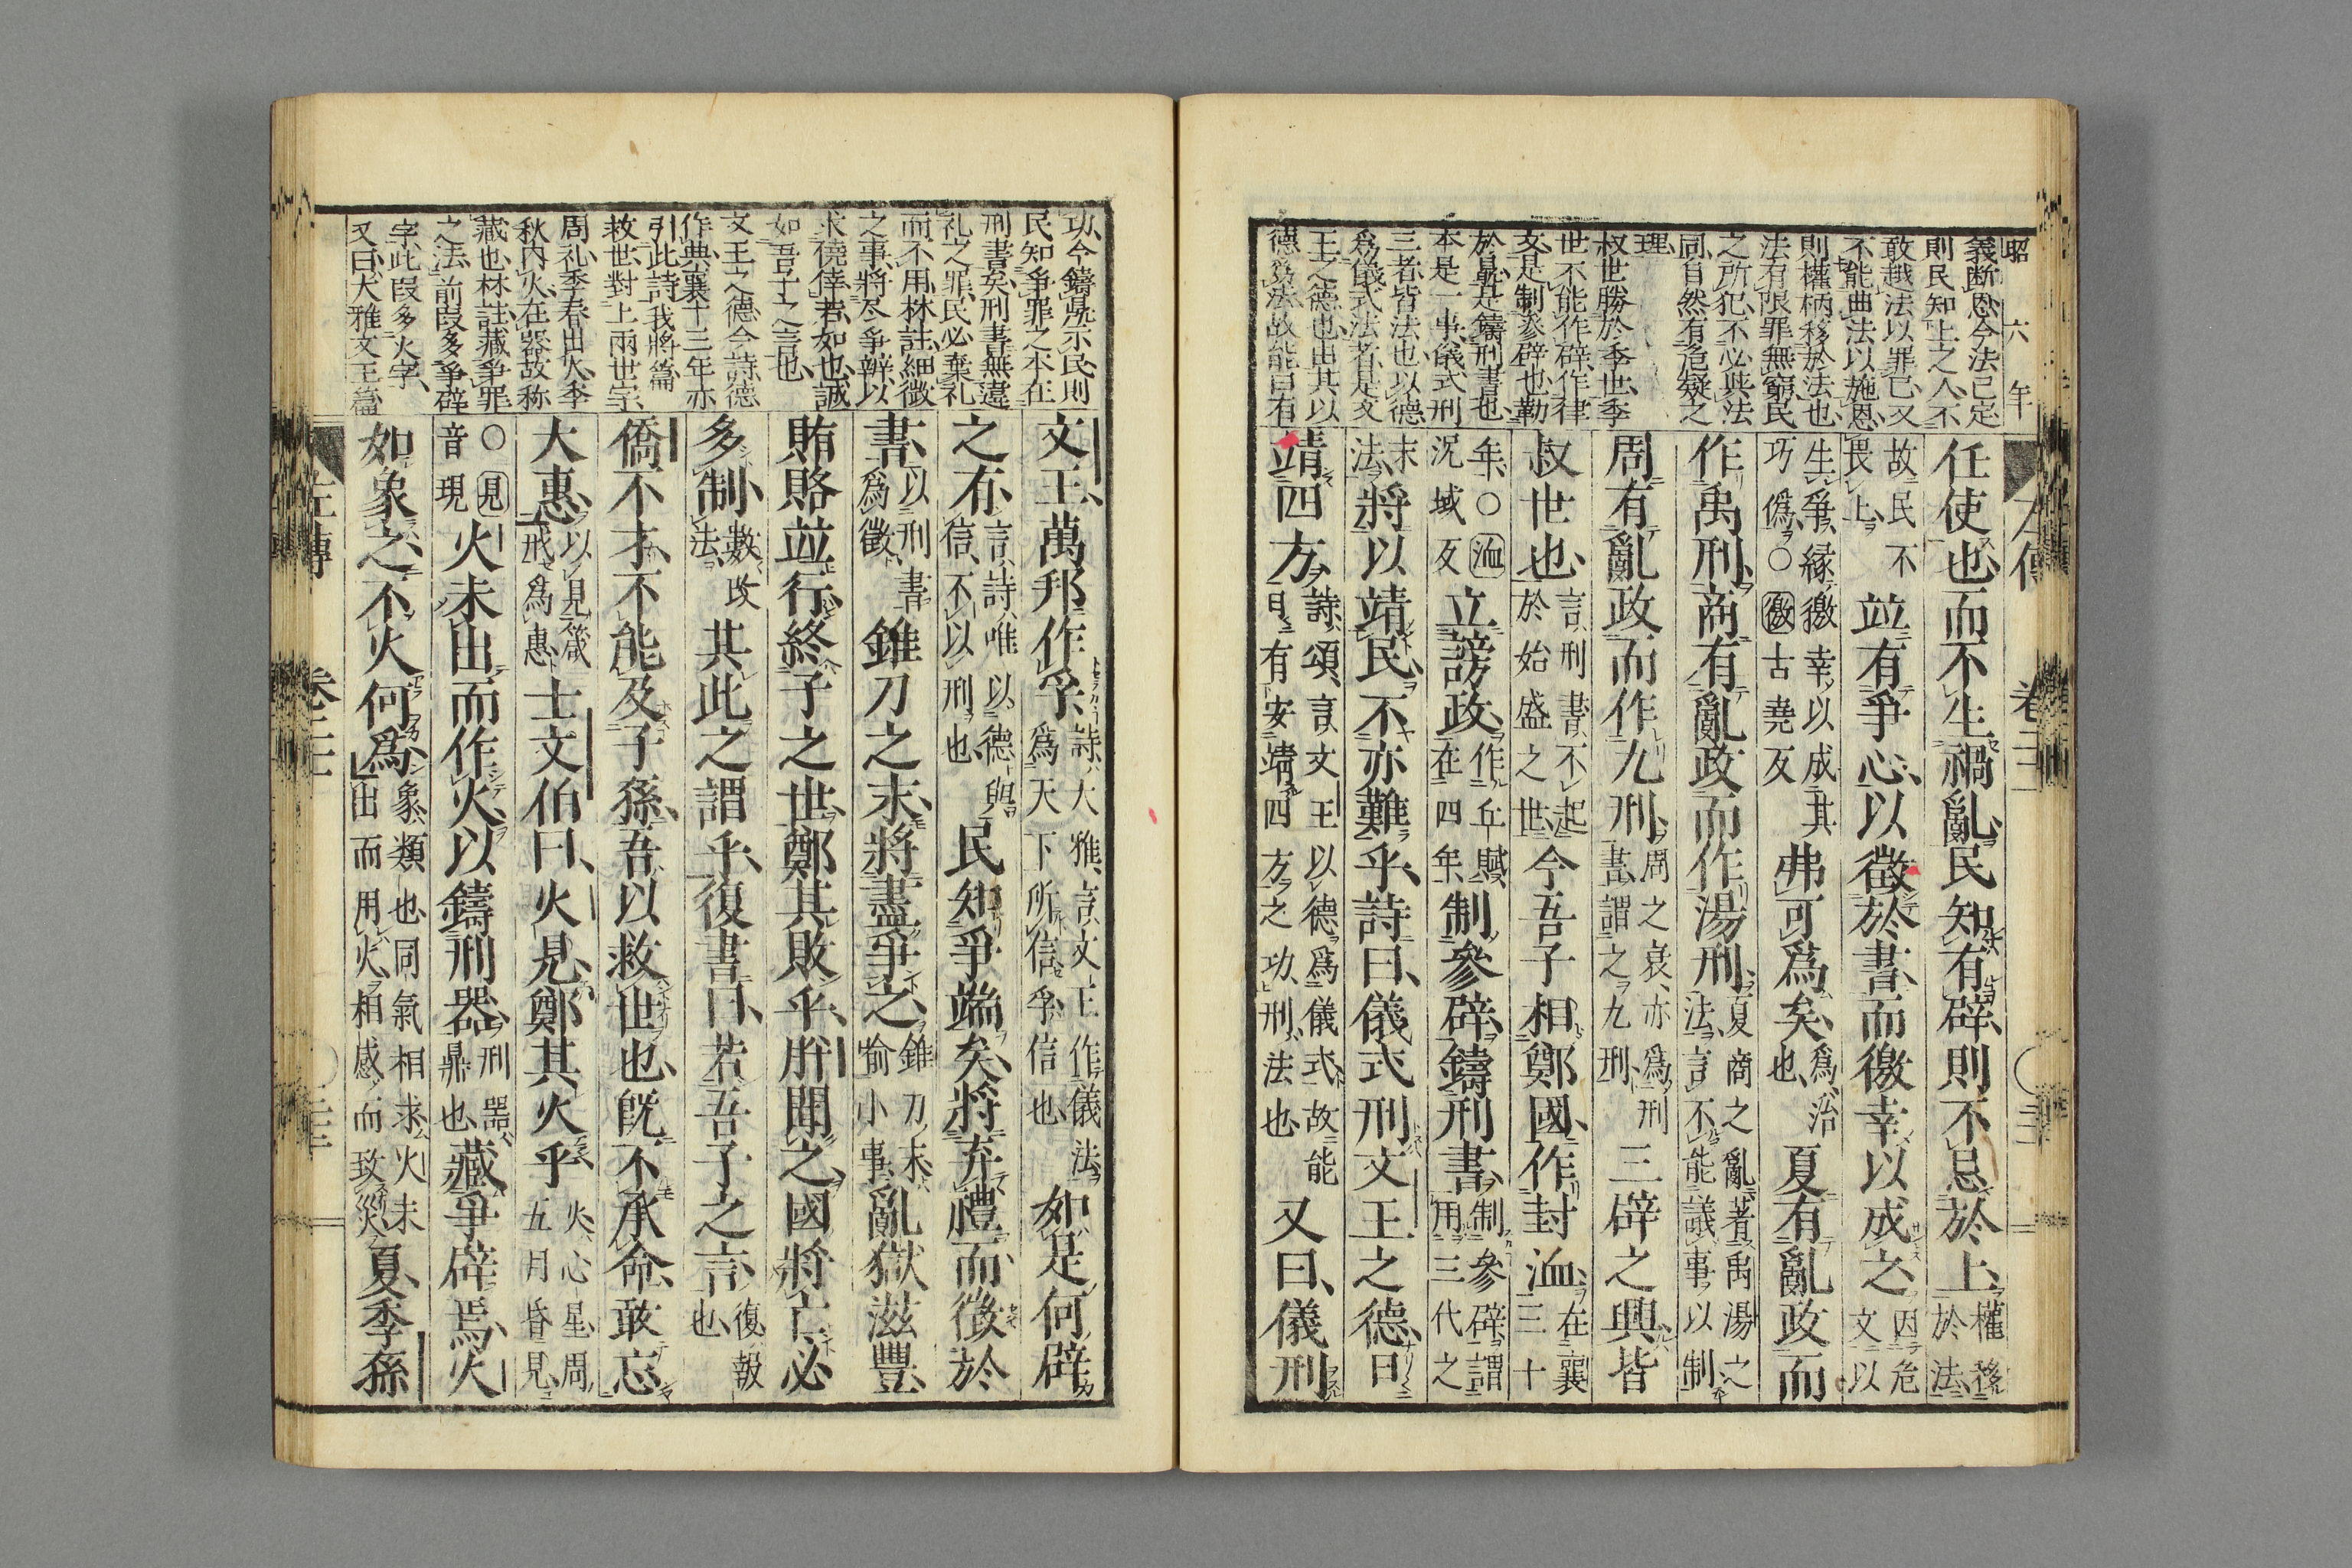 昭 六年
義断恩今法已定
則民知上之人不
敢越法以罪己又
不能曲法以施恩
則權柄移於法也
法有限罪無窮民
之所犯不必典法
同自然有危疑之
理
叔世勝於季世季
世不能作辟作律
文是制參辟也勒
於鼎是鑄刑書也
本是一事儀式刑
三者皆法也以德
爲儀式法者是文
王之德也由其以
德爲法故能日有
任使也而不生禍亂民知有辟則不忌於上權移於法
故民不畏上竝有爭心以徵於書而徼幸以成之因危文以
生爭緣徼幸以成其巧僞○徼古堯反弗可爲矣爲治也夏有亂政而
作禹刑商有亂政而作湯刑夏商之亂著禹湯之法言不能議事以制
周有亂政而作九刑周之衰亦爲刑書謂之九刑三辟之興皆
叔世也言刑書不起於始盛之世今吾子相鄭國作封洫在襄三十
年○洫況域反立謗政作丘賦在四年制參辟鑄刑書制參辟謂用三代之
末法將以靖民不亦難乎詩曰儀式刑文王之德日
靖四方詩頌言文王以德爲儀式故能日有安靖四方之功刑法也又曰儀刑
左傳 卷二十一
功今鑄鼎示民則
民知爭罪之本在
刑書矣刑書無違
礼之罪民必棄礼
而不用林註細微
之事將尽爭辯以
求僥倖若如也誠
如吾子之言也
文王之德今詩德
作典襄十三年亦
引此詩我將篇
救世對上兩世字
周礼季春出火季
秋内火在器故称
藏也林註藏爭罪
之法前段多爭辟
字此段多火字
又曰大雅文王篇
文王萬邦作孚詩大雅言文王作儀法爲天下所信孚信也如是何辟
之有言詩唯以德與信不以刑也民知爭端矣將弃禮而徵於
書以刑書爲徵錐刀之末將盡爭之錐刀末喻小事亂獄滋豐
賄賂竝行終子之世鄭其敗乎肸聞之國將亡必
多制數改法其此之謂乎復書曰若吾子之言復報也
僑不才不能及子孫吾以救世也旣不承命敢忘
大惠以見箴戒爲惠士文伯曰火見鄭其火乎火心星周五月昏見
○見音現火未出而作火以鑄刑器刑器鼎也藏爭辟焉火
如象之不火何爲象類也同氣相求火未出而用火相感而致災夏季孫